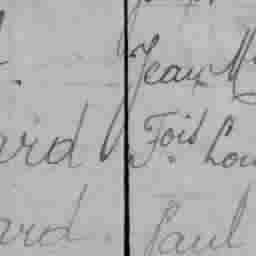 Jean M
ard Fois Lou
ard Paul